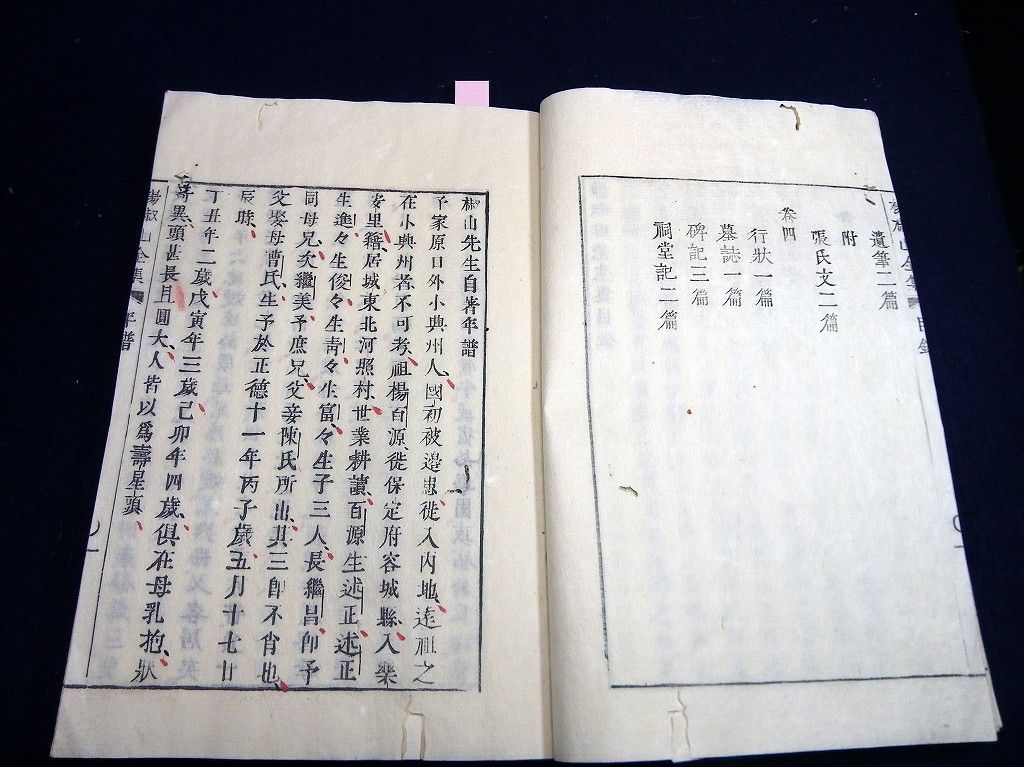 遺筆二篇
附
張氏文二篇
卷四
行狀一篇
墓誌一篇
碑記三篇
祠堂記二篇
椒山先生自著年譜
予家原口外小興州人國初被邊患徙入內地遠祖之
在小興州者不可考祖楊百源徙保定府容城縣入樂
安里籍居城東北河照村世業耕讀百源生述正述正
生進々生俊々生靑々生富々生子三人長繼昌卽予
同母兄次繼美予庶兄父妾陳氏所出其三卽不肖也
父娶母曹氏生予於正德十一年丙子歲五月十七日
辰時
丁丑年二歲戊寅年三歲己卯年四歲俱在母乳抱狀
奇異頭甚長且圓大人皆以爲壽星頭
楊椒山全集
年譜